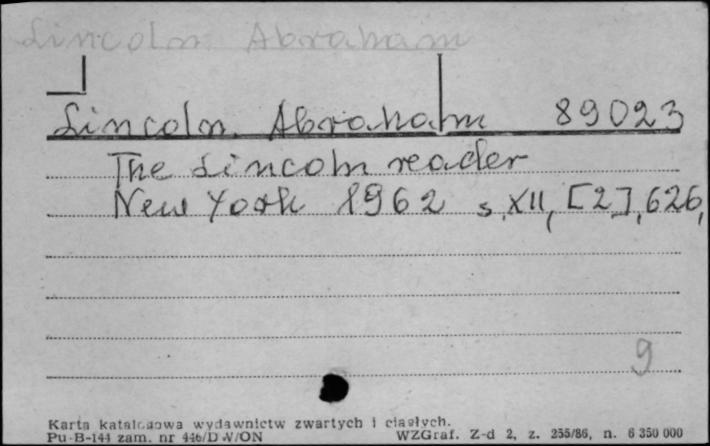 Lincoln Abraham
Lincoln Abraham 89023
The Lincoln reader
New York 1962 s. XII, [2], 626,
9
Karta katalogowa wydawnictw zwartych i ciągłych.
Pu-B-144 zam. nr 446/DW/ON WZGraf. Z-d 2, z. 255/86, n. 6 350 000